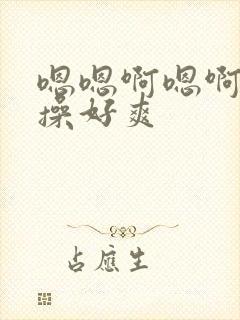 嗯嗯啊嗯啊
操好爽
占应生